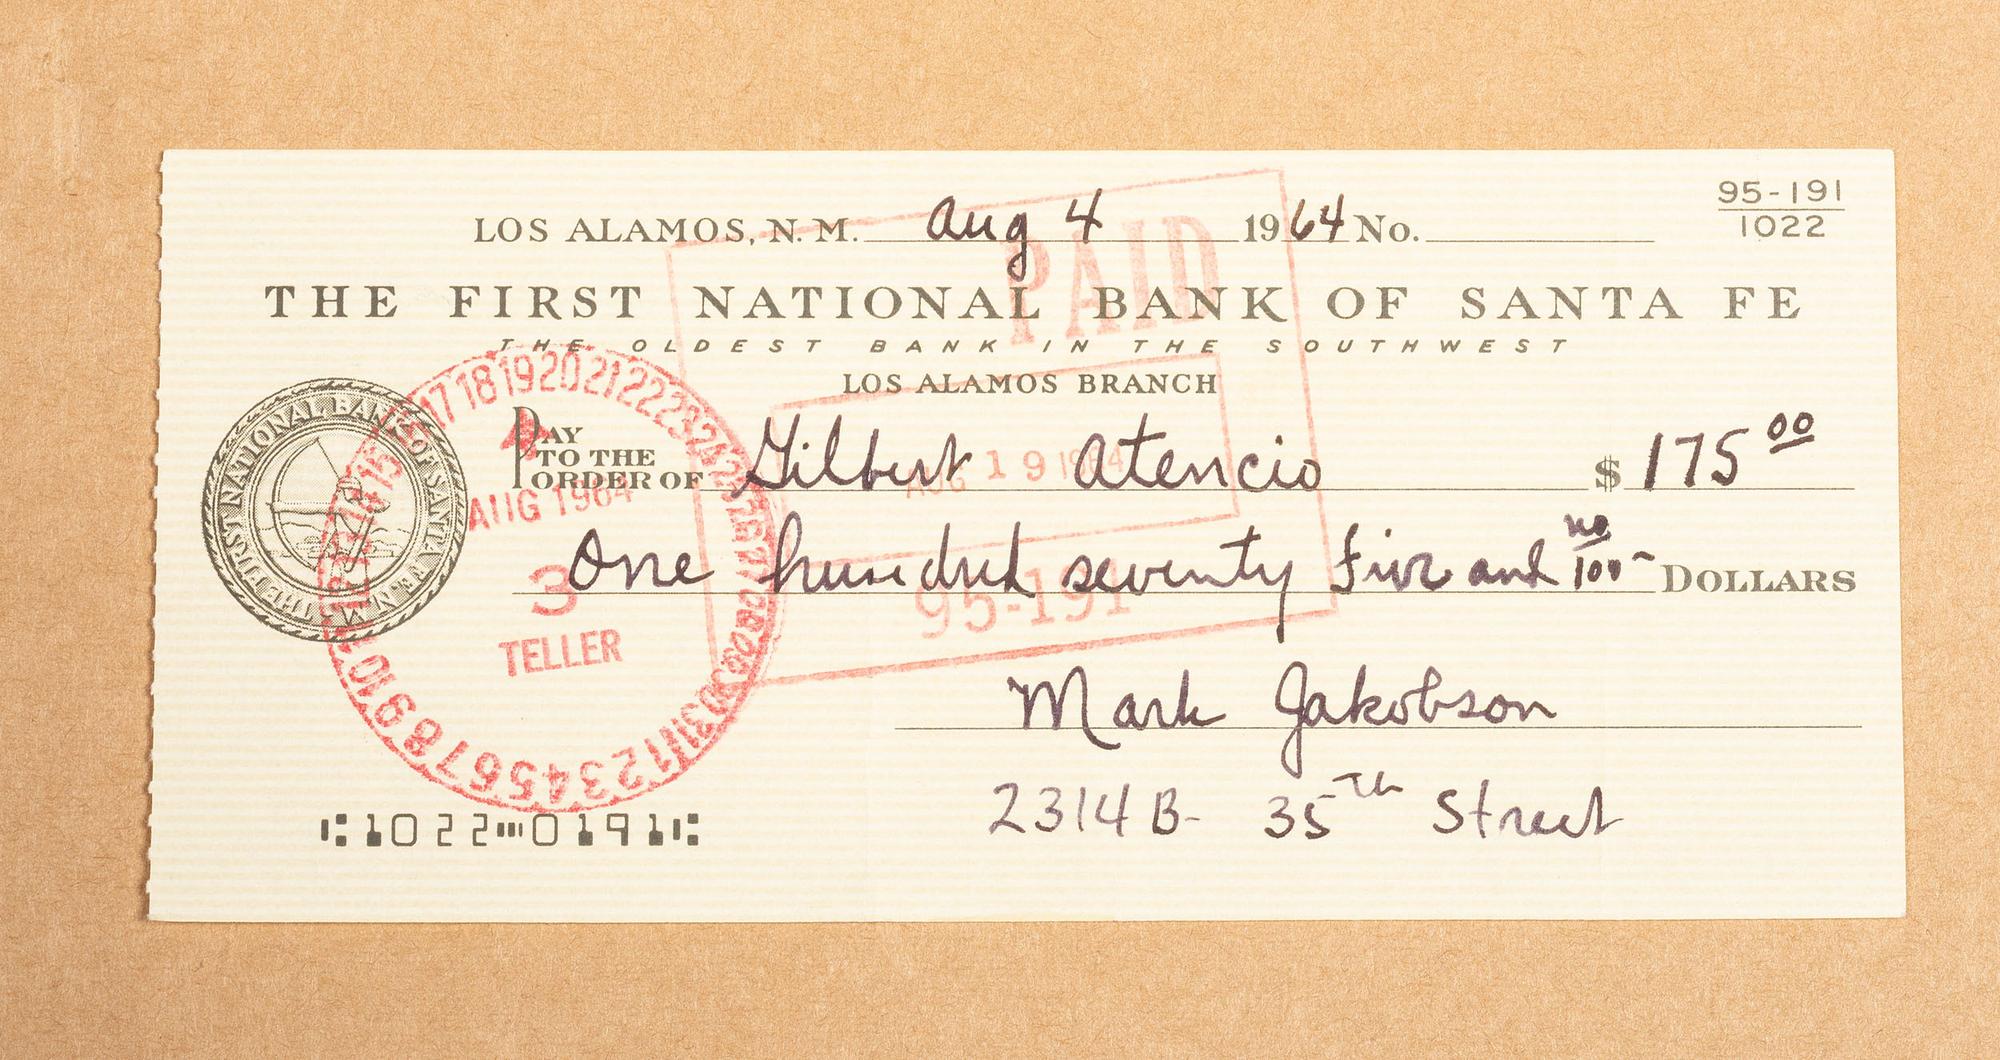 95-191
1022
LOS ALAMOS, N. M. Aug 4 1964 No.
PAID
THE FIRST NATIONAL BANK OF SANTA FE
THE OLDEST BANK IN THE SOUTHWEST
LOS ALAMOS BRANCH
THE FIRST NATIONAL BANK OF SANTA FE, N.M.
PAY TO THE ORDER OF Gilbert Atencio $ 175 00
AUG 19 1964
One hundred seventy five and no/100 DOLLARS
95-191
4
AUG 1964
3
TELLER
1 2 3 4 5 6 7 8 9 10 11 12 13 14 15 16 17 18 19 20 21 22 23 24 25 26 27 28 29 30 31
Mark Jakobson
2314 B- 35Th Street
⑆1022⑉0191⑆